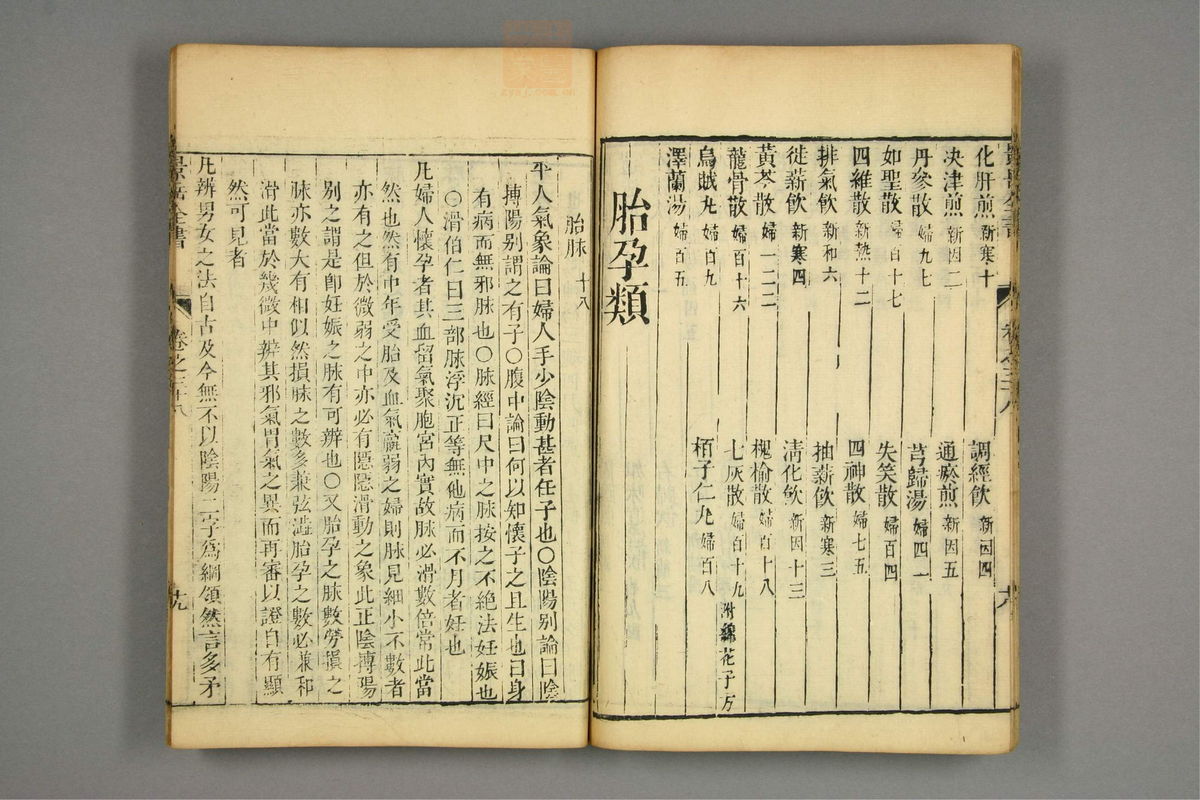 景岳全書
卷之三十八
十八
化肝煎 新寒十
調經飲 新因四
決津煎 新因二
通瘀煎 新因五
丹參散 婦九七
芎歸湯 婦四一
如聖散 婦百十七
失笑散 婦百四
四維散 新熱十二
四神散 婦七五
排氣飲 新和六
抽薪飲 新寒三
徙薪飲 新寒四
清化飲 新因十三
黃芩散 婦一二二
槐榆散 婦百十八
龍骨散 婦百十六
七灰散 婦百十九 附綿花子方
烏賊丸 婦百九
栢子仁丸 婦百八
澤蘭湯 婦百五
胎孕類
胎脉 十八
平人氣象論曰婦人手少陰動甚者任子也○陰陽別論曰陰
搏陽別謂之有子○腹中論曰何以知懷子之且生也曰身
有病而無邪脉也○脉經曰尺中之脉按之不絕法妊娠也
○滑伯仁曰三部脉浮沉正等無他病而不月者妊也
凡婦人懷孕者其血留氣聚胞宮內實故脉必滑數倍常此當
然也然有中年受胎及血氣羸弱之婦則脉見細小不數者
亦有之但於微弱之中亦必有隱隱滑動之象此正陰搏陽
別之謂是卽妊娠之脉有可辨也○又胎孕之脉數勞損之
脉亦數大有相似然損脉之數多兼弦澁胎孕之數必兼和
滑此當於幾微中辨其邪氣胃氣之異而再審以證自有顯
然可見者
凡辨男女之法自古及今無不以陰陽二字爲綱領然言多矛
景岳全書
卷之三十八
十九